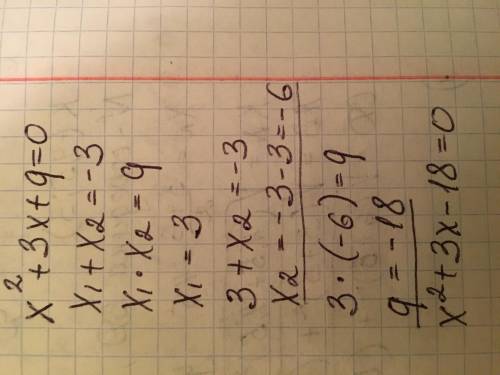 x² + 3x + q = 0
x₁ + x₂ = -3
x₁ · x₂ = q
x₁ = 3
3 + x₂ = -3
x₂ = -3 - 3 = -6
3 · (-6) = q
q = -18
x² + 3x - 18 = 0